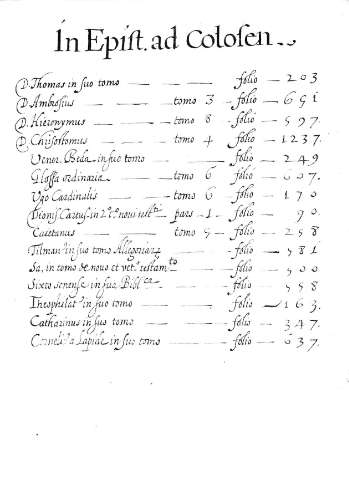 In Epist. ad Colosen
D. Thomas in suo tomo folio 203
D. Ambrosius tomo 3 folio 691
D. Hieronymus tomo 8 folio 597.
D. Chrisostomus tomo 4 folio 1237.
Vener. Beda in suo tomo folio 249
Glossa ordinaria tomo 6 folio 607.
Ugo Cardinalis tomo 6 folio 170
Dionis. Cartus. in pars 1. folio 90.
Caietanus tomo 5 folio 258
Tilman in suo tomo Allegoriar folio 581
Sa, in tomo de nouo et vet. testamto folio 500
Sixto senense in sua Bibl.ca folio 558
Theophilat in suo tomo folio 163.
Catharinus in suo tomo folio 347.
Corneli a lapide in suo tomo folio 637.